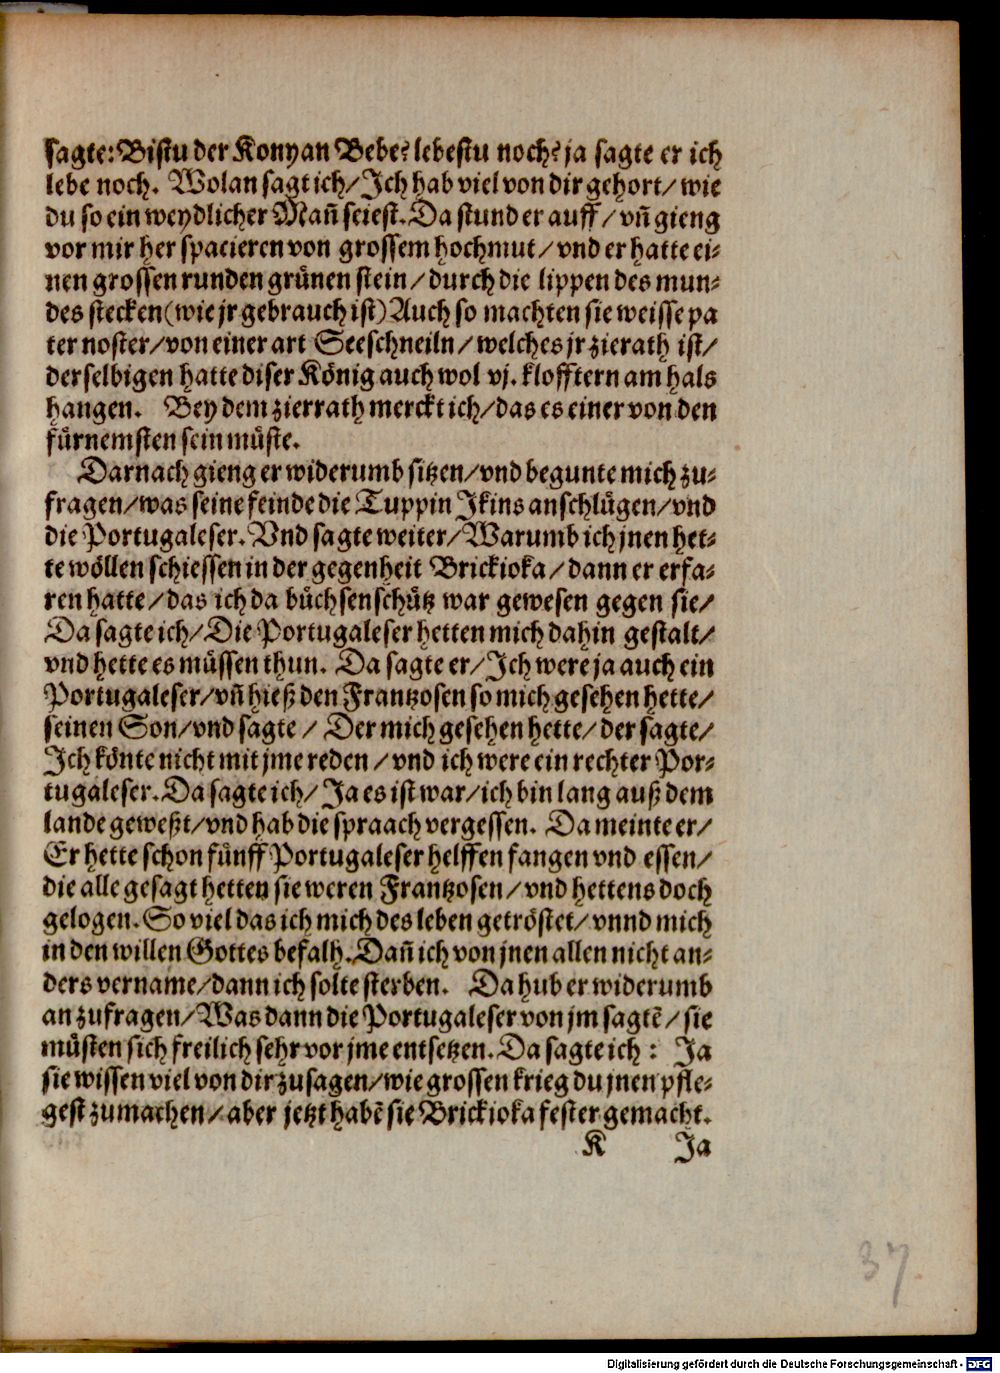 sagte: Bistu der Konyan Bebe? lebestu noch? ja sagte er ich
lebe noch. Wolan sagt ich/ Ich hab viel von dir gehort/ wie
du so ein weydlicher Mañ seiest. Da stund er auff/ vñ gieng
vor mir her spacieren von grossem hochmut/ vnd er hatte ei-
nen grossen runden grünen stein/ durch die lippen des mun-
des stecken (wie jr gebrauch ist) Auch so machten sie weisse pa
ter noster/ von einer art Seeschneiln/ welches jr zierath ist/
der selbigen hatte diser König auch wol vj. klofftern am hals
hangen. Bey dem zierrath merckt ich/ das es einer von den
fürnemsten sein müste.
Darnach gieng er widerumb sitzen/ vnd begunte mich zu-
fragen/ was seine feinde die Tuppin Ikins anschlügen/ vnd
die Portugaleser. Vnd sagte weiter/ Warumb ich jnen het-
te wöllen schiessen in der gegenheit Brickioka/ dann er erfa-
ren hatte/ das ich da büchsenschütz war gewesen gegen sie/
Da sagte ich/ Die Portugaleser hetten mich dahin gestalt/
vnd hette es müssen thun. Da sagte er/ Ich were ja auch ein
Portugaleser/ vñ hieß den Frantzosen so mich gesehen hette/
seinen Son/ vnd sagte/ Der mich gesehen hette/ der sagte/
Ich könte nicht mit jme reden/ vnd ich were ein rechter Por-
tugaleser. Da sagte ich/ Ja es ist war/ ich bin lang auß dem
lande geweßt/ vnd hab die spraach vergessen. Da meinte er/
Er hette schon fünff Portugaleser helffen fangen vnd essen/
die alle gesagt hetten sie weren Frantzosen/ vnd hettens doch
gelogen. So viel das ich mich des leben getröstet/ vnnd mich
in den willen Gottes befalh. Dañ ich von jnen allen nicht an-
ders vername/ dann ich solte sterben. Da hub er widerumb
an zufragen/ Was dann die Portugaleser von jm sagtẽ/ sie
müsten sich freilich sehr vor jme entsetzen. Da sagte ich: Ja
sie wissen viel von dir zusagen/ wie grossen krieg du jnen pfle-
gest zumachen/ aber jetzt habẽ sie Brickioka fester gemacht.
K Ja
37
Digitalisierung gefördert durch die Deutsche Forschungsgemeinschaft - DFG